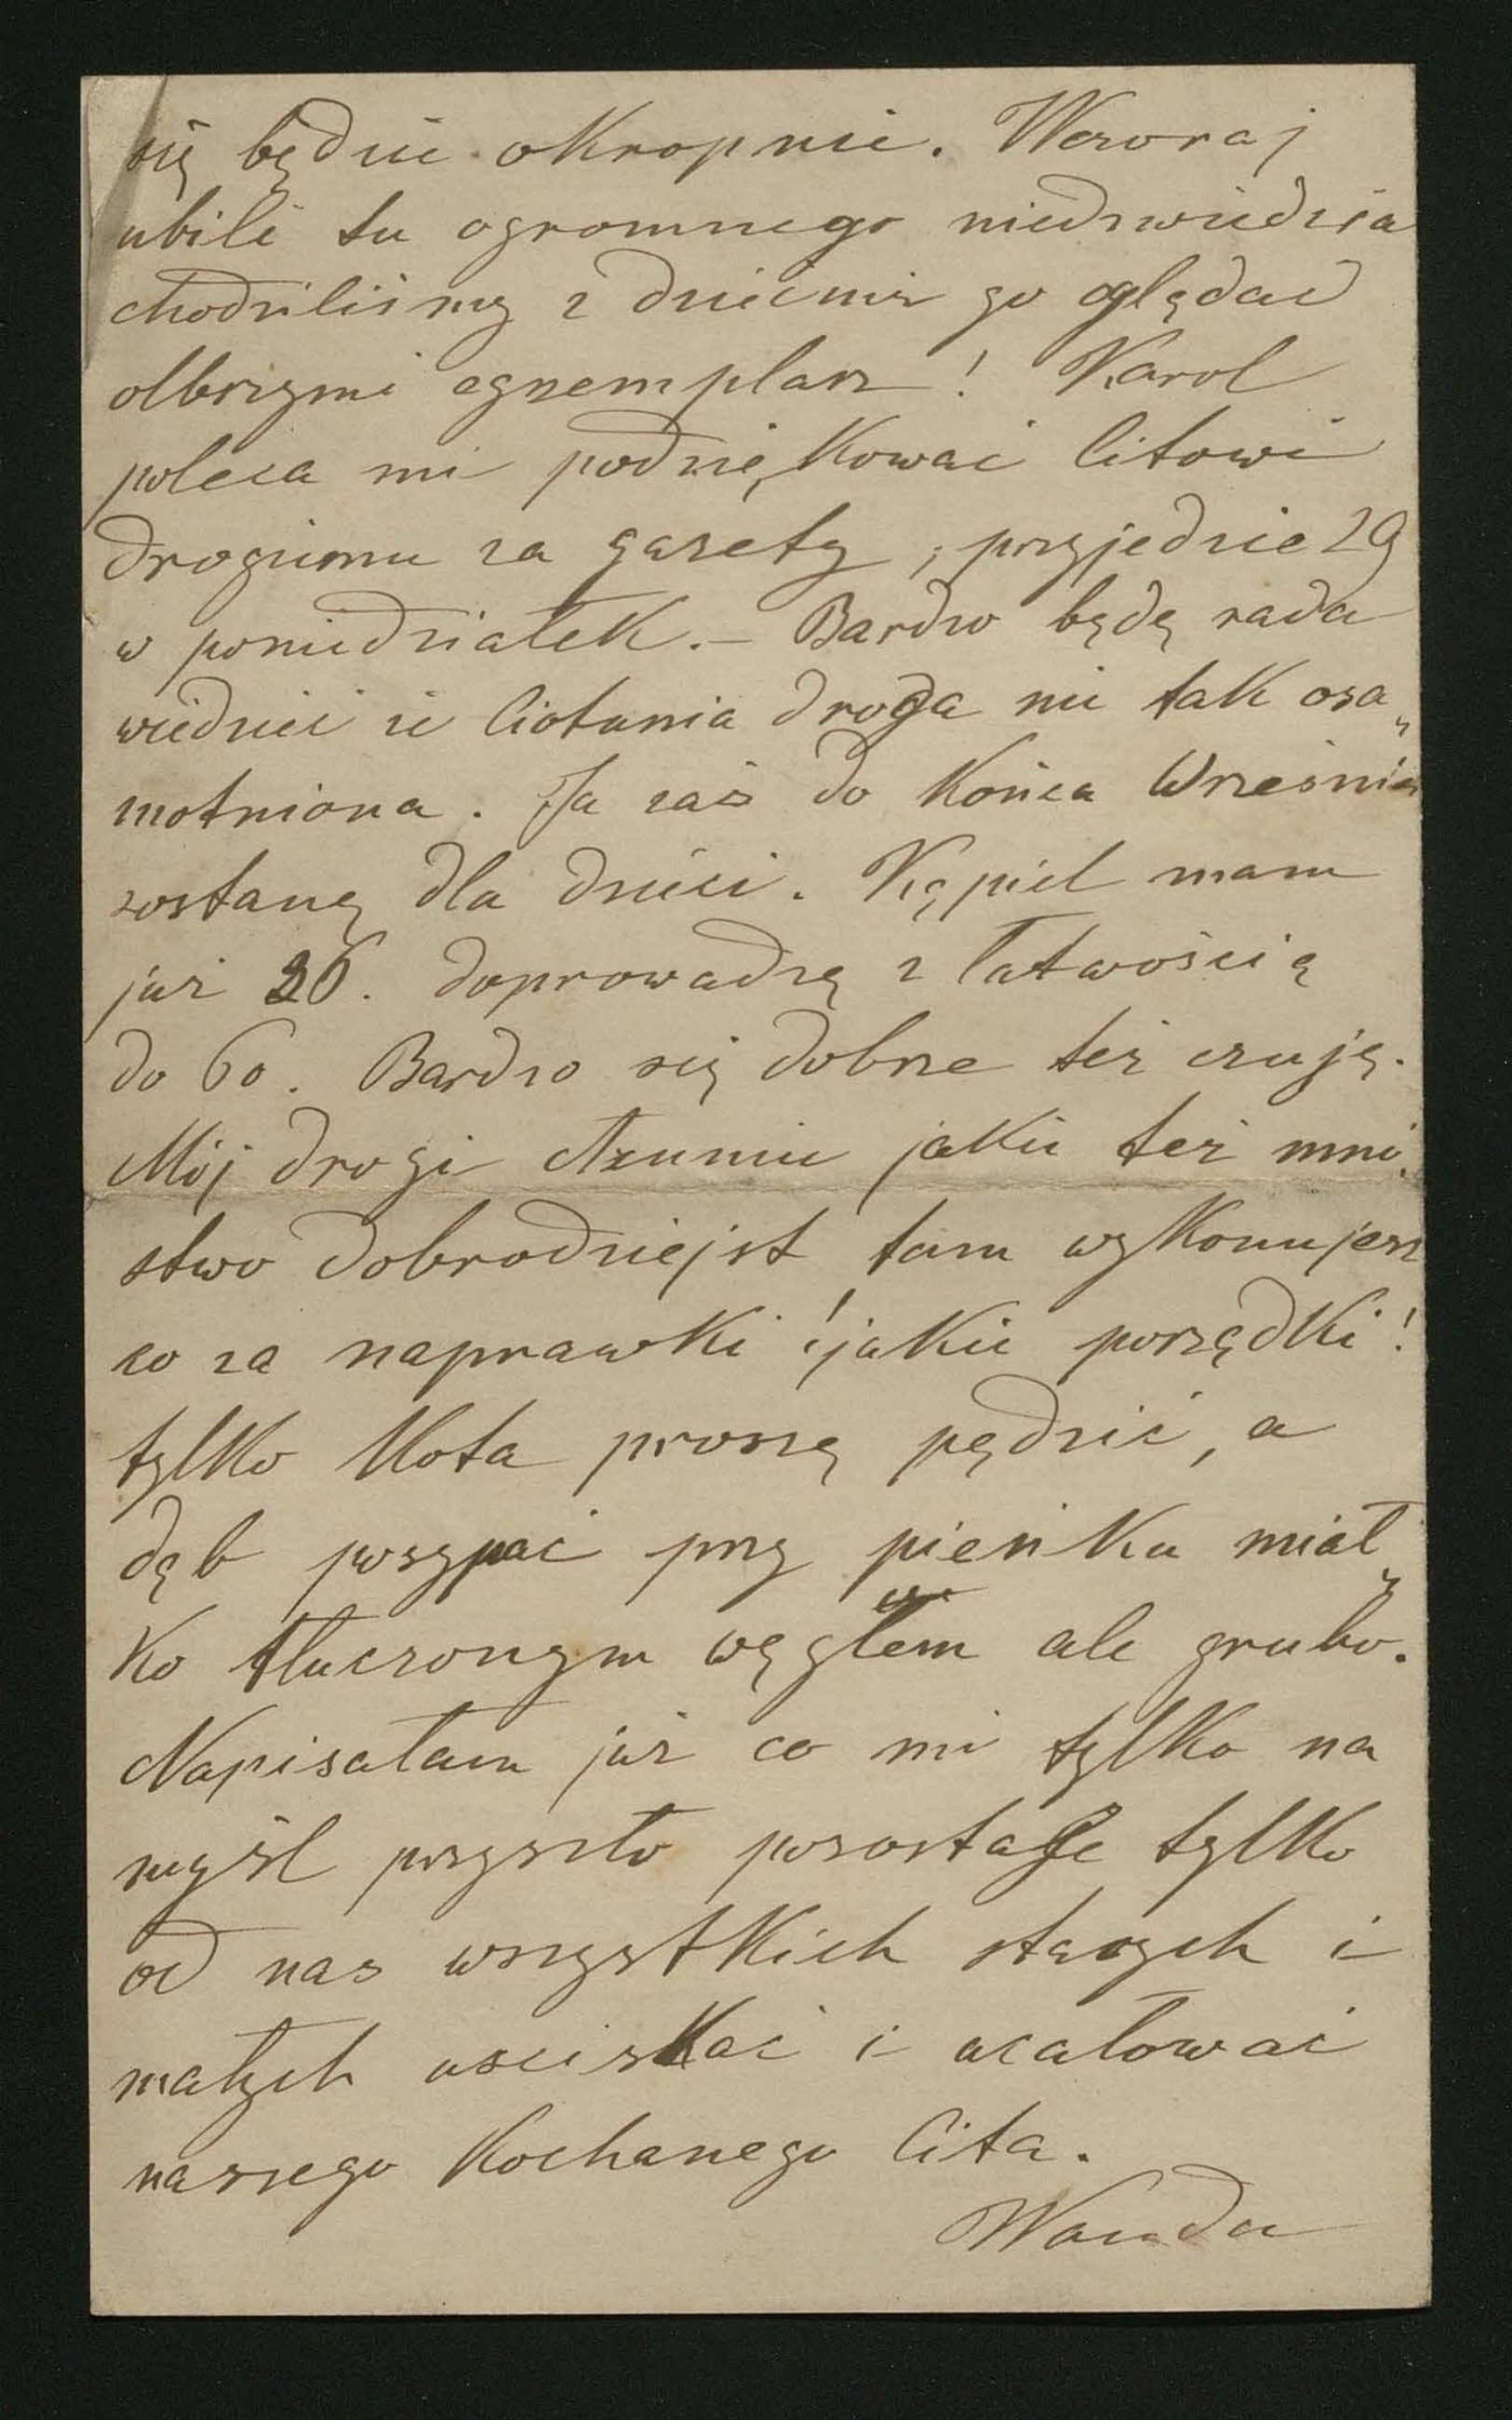 się będzie okropnie. Wczoraj
ubili tu ogromnego niedzwiedzia
chodziliśmy z dziećmi go oglądać
olbrzymi egzemplarz! Karol
poleca mi podziękować Citowi
drogiemu za gazety, przyjedzie 29
w poniedziałek. – Bardzo będę rada
wiedzieć że Ciotunia droga nie tak osa„
motniona. Ja zaś do końca Wrzesnia
zostanę dla dzieci. Kąpiel mam
już 26. doprowadzę z łatwością
do 60. Bardzo się dobrze też czuję.
Mój drogi jakie też mnó„
stwo dobrodziejst tam wykonujesz
co za naprawki! jakie porządki!
tylko Kota proszę pędzić, a
dąb posypać przy pieńku miał„
ko tłuczonym węglem ale grubo.
Napisałam już co mi tylko na
myśl przyszło pozostaje tylko
od nas wszystkich starych i
małych usciskać i ucałować
naszego Kochanego Cita.
Wanda